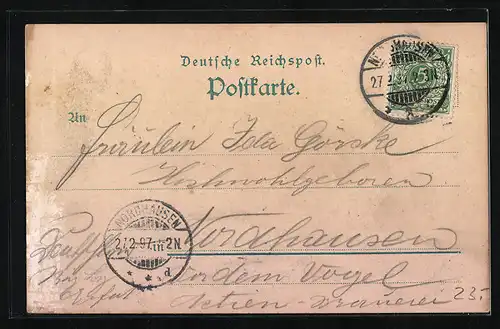 Deutsche Reichspost.
Postkarte.
An
NORDHAUSEN
27
Fräulein Ida Görske
Hochwohlgeboren
NORDHAUSEN
27.2.97. 11-12N
* * d
Nordhausen
Vor dem Vogel
Actien-Brauerei
23.-